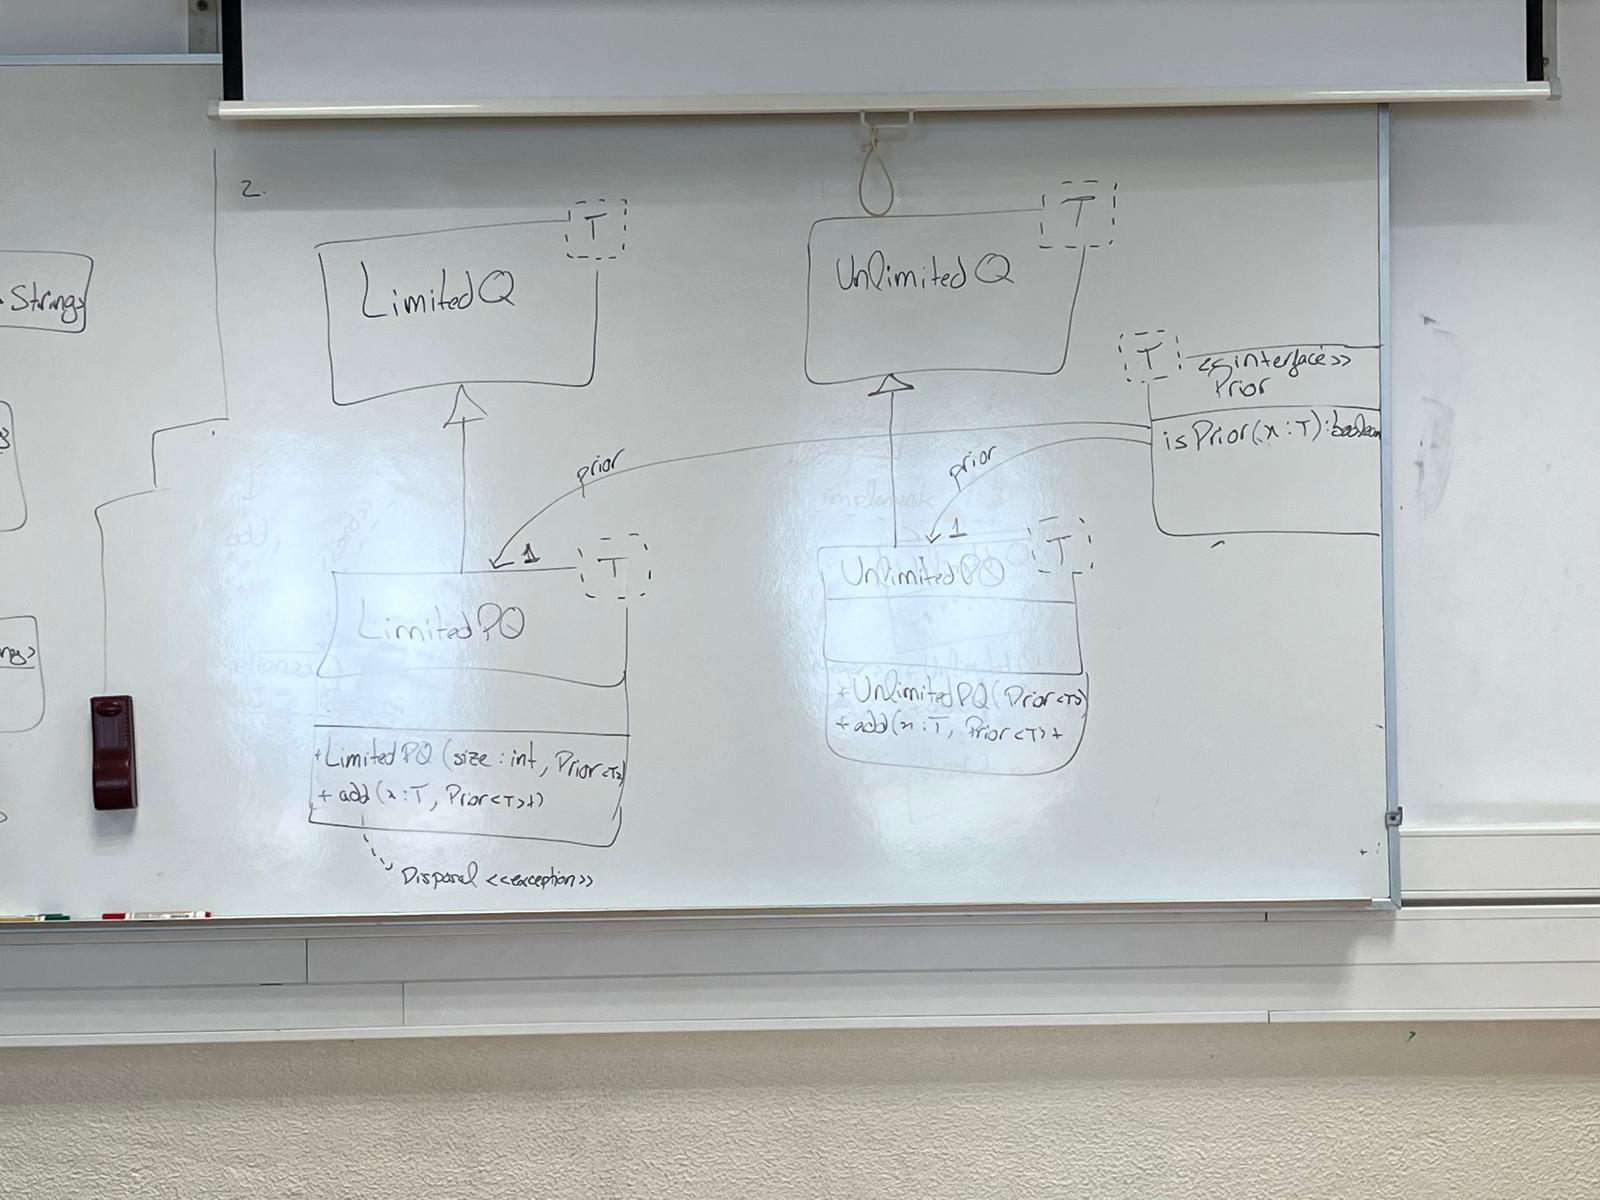 2.
Strings
T
LimitedQ
T
UnlimitedQ
T
<<interface>>
Prior
isPrior(x:T):boolean
prior
prior
1
T
LimitedPQ
+LimitedPQ (size:int, Prior<T>
+ add (x:T, Prior<T>+)
Disposal <<exception>>
1
T
UnlimitedPQ
+UnlimitedPQ(Prior<T>
+ add(x:T, Prior<T>+